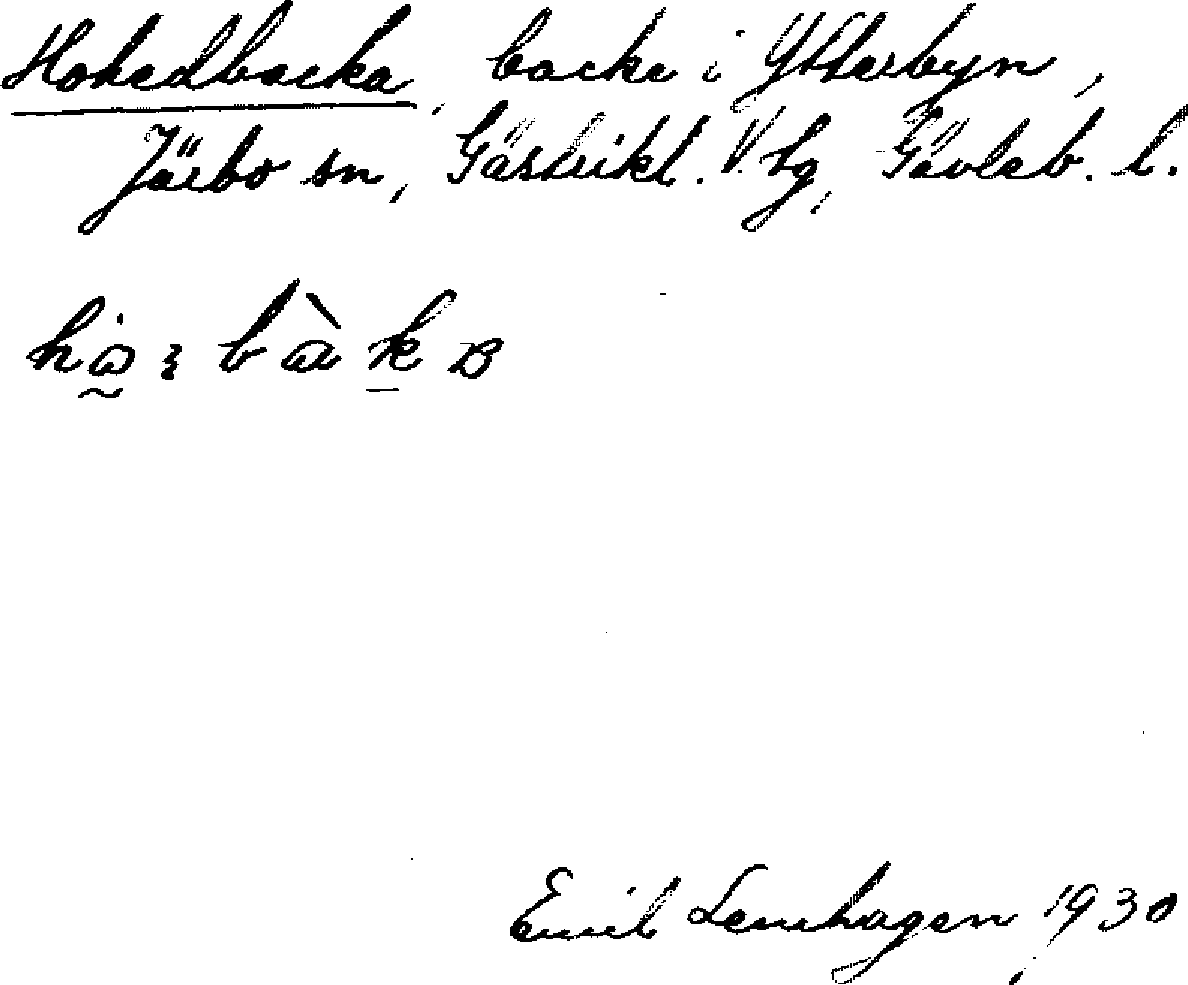 Hohedbacka, backe i Ytterbyn,
Järbo sn, Gästrikl. V. tg, Gävleb. l.
Emil Lenhagen 1930